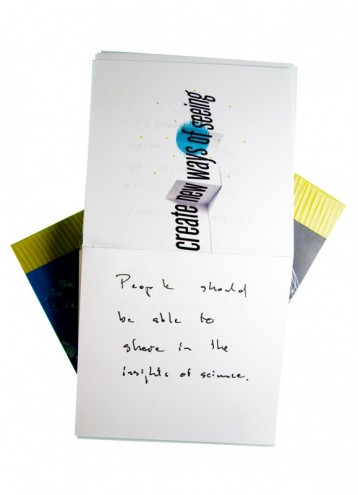 create new ways of seeing
People should
be able to
share in the
insights of science.